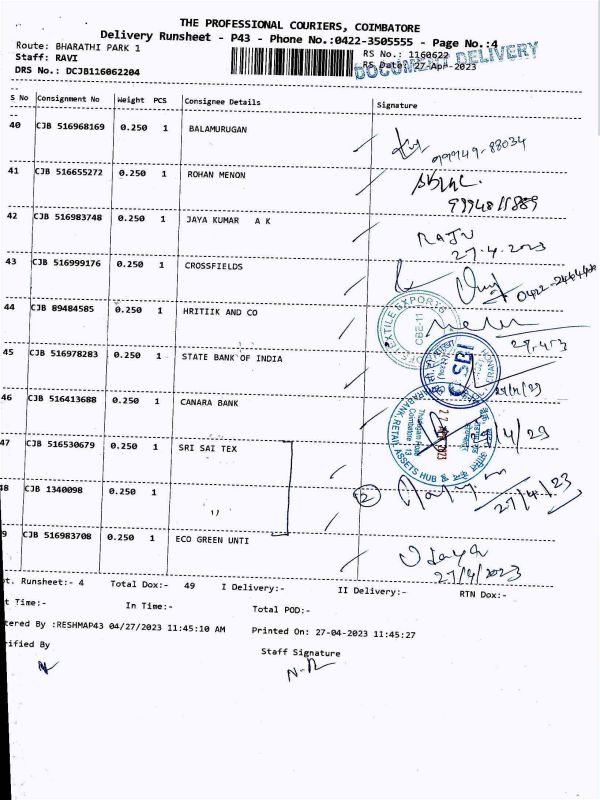 THE PROFESSIONAL COURIERS, COIMBATORE
Delivery Runsheet - P43 - Phone No.:0422-3505555 - Page No.:4
Route: BHARATHI PARK 1
RS No.: 1160622
Staff: RAVI
RS Date: 27-Apr-2023
DOCUMENT DELIVERY
DRS No.: DCJB116062204
S No Consignment No Weight PCS Consignee Details Signature
40 CJB 516968169 0.250 1 BALAMURUGAN
99949-88034
41 CJB 516655272 0.250 1 ROHAN MENON
9994811889
42 CJB 516983748 0.250 1 JAYA KUMAR A K
RAJU
27.4.2023
43 CJB 516999176 0.250 1 CROSSFIELDS
44 CJB 89484585 0.250 1 HRITIIK AND CO
TEXTILE EXPORTS
CBE-11
45 CJB 516978283 0.250 1 STATE BANK OF INDIA
SBI
46 CJB 516413688 0.250 1 CANARA BANK
RETAIL ASSETS HUB
Coimbatore 13
47 CJB 516530679 0.250 1 SRI SAI TEX
48 CJB 1340098 0.250 1 ,,
2
27/4/23
9 CJB 516983708 0.250 1 ECO GREEN UNTI
27/4/2023
t. Runsheet:- 4 Total Dox:- 49 I Delivery:- II Delivery:- RTN Dox:-
t Time:- In Time:- Total POD:-
tered By :RESHMAP43 04/27/2023 11:45:10 AM Printed On: 27-04-2023 11:45:27
rified By
Staff Signature